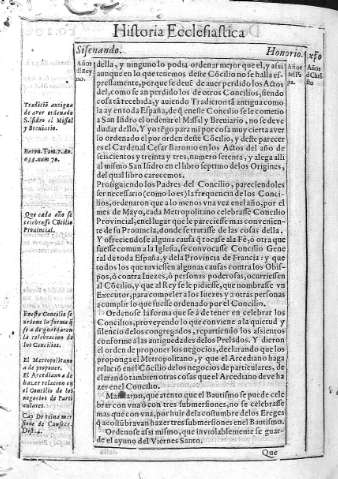 Historia Ecclesiastica
Sisenando.
Honorio.
Años
della, y ninguno lo podia ordenar mejor que el, y assi
aunque en lo que tenemos deste Cōcilio no se halla es-
pressamente, porque se deuē de auer perdido los Actos
del, como se an perdido los de otros Concilios, siendo
cosa tā recebida, y auiendo Tradiciō tā antigua como
la ay en toda España, de q̄ en este Cōcilio se le cometio
a San Isidro el ordenar el Missal y Breuiario, no se deue
dudar dello. Y yo tēgo para mi por cosa muy cierta aver
lo ordenado el por orden deste Cōcilio, y deste parecer
es el Cardenal Cesar Baronio en los Actos del año de
seiscientos y treinta y tres, numero setenta, y alega alli
al mismo San Isidro en el libro septimo de los Origines,
del qual libro carecemos.
Prosiguiendo los Padres del Concilio, pareciendoles
ser necessario (como lo es) la frequencia de los Conci-
lios, ordenaron que a lo menos vna vez en el año, por el
mes de Mayo, cada Metropolitano celebrasse Concilio
Prouincial, en el lugar que le pareciesse mas convenien-
te de su Prouincia, donde se tratasse de las cosas della.
Y ofreciendose alguna causa q̄ tocasse a la Fè, o otra que
fuesse comun a la Iglesia, se conuocasse Concilio Gene
ral de toda España, y de la Prouincia de Francia: y que
todos los que tuuiessen algunas causas contra los Obis-
pos, ò contra Iuezes, ò personas poderosas, ocurriessen
al Cōcilio, y que al Rey se le pidiesse, que nombrasse vn
Executor, para compeler a los Iuezes y a otras personas
a cumplir lo que fuesse ordenado por el Concilio.
Ordenose la forma que se à de tener en celebrar los
Concilios, proveyendo lo que conviene a la quietud y
silencio de los congregados, repartiendo los assientos
conforme a las antiguedades de los Prelados. Y dieron
el orden de proponer los negocios, declarando que los
proponga el Metropolitano, y que el Arcediano haga
relaciō en el Cōcilio de los negocios de particulares, de
clarando tambien otras cosas que el Arcediano deve ha
zer en el Concilio.
que atento que el Bautismo se puede cele
brar con vna ò con tres submersiones, no se celebrasse
mas que con vna, por huir de la costumbre de los Ereges
q̄ acostūbravan hazer tres submersiones en el Bautismo.
Ordenose assi mismo, que inviolablemente se guar-
de el ayuno del Viernes Santo.
Que
Tradiciō antigua
de aver ordenado
S. Isidro el Missal
y Breuiario.
Que cada año se
celebrasse Cōcilio
Prouincial.
la celebracion de
los Concilios.
El Metropolitano
a de proponer.
El Arcediano a de
hazer relacion en
el Concilio de los
negocios de Parti
culares.